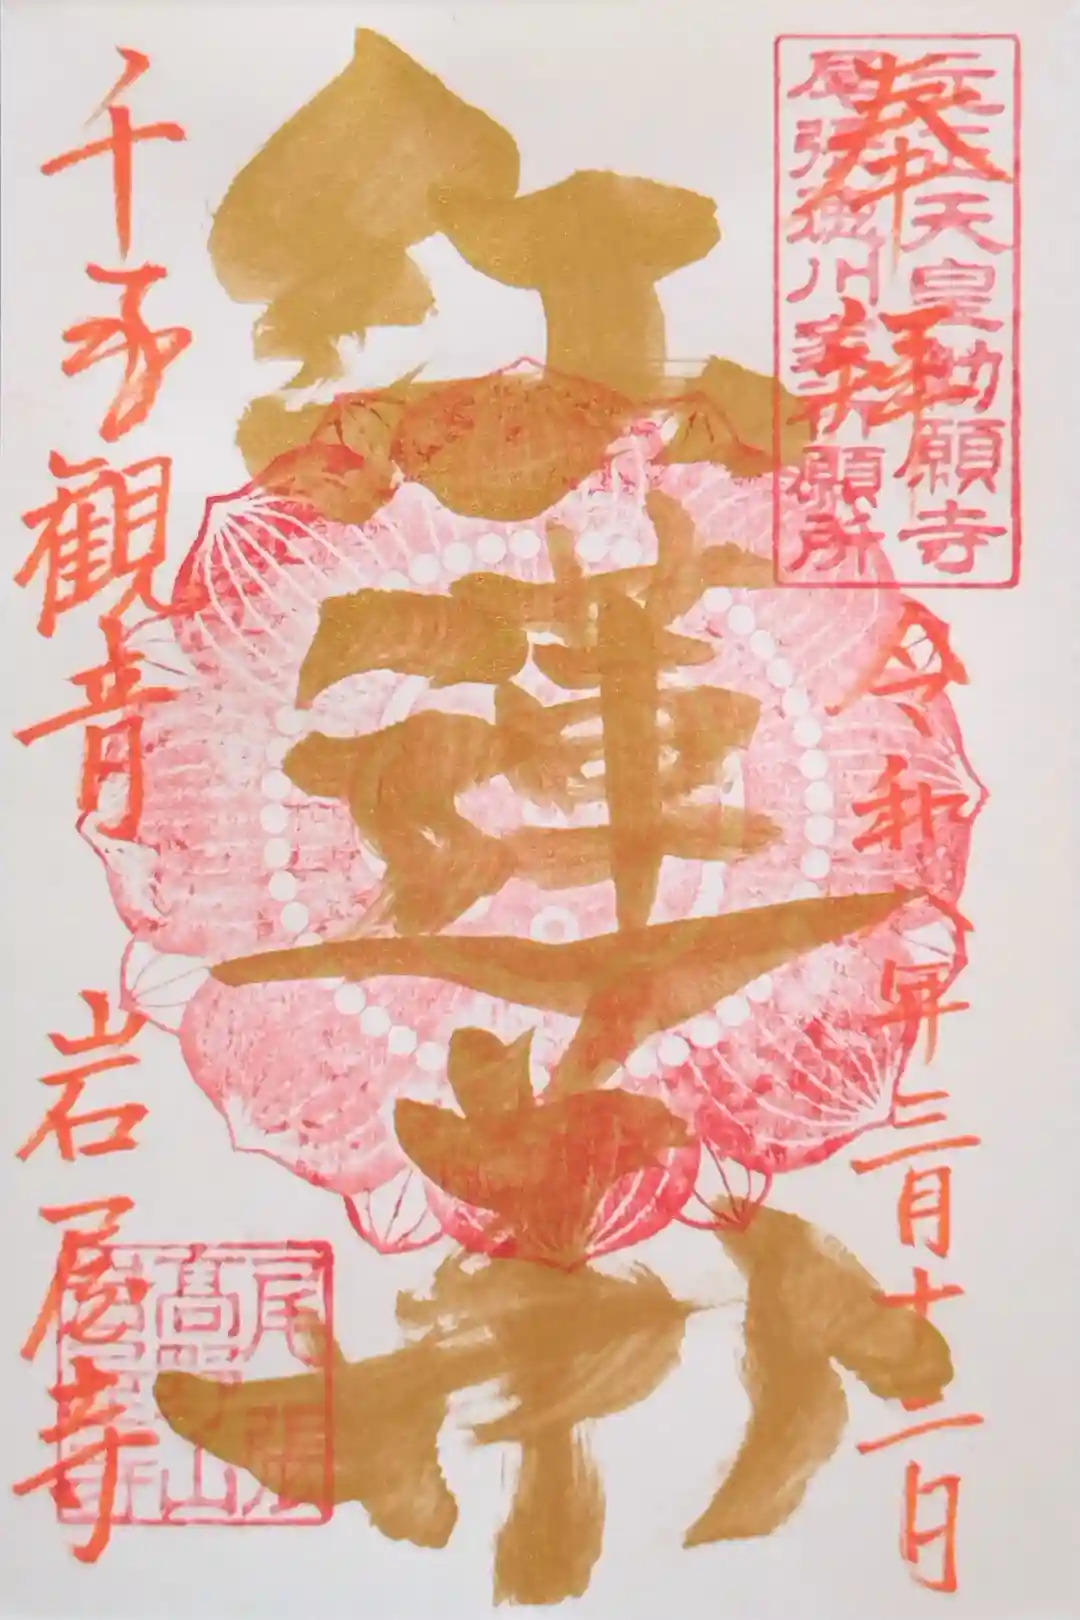 元正天皇勅願寺
尾張徳川家祈願所
奉拝
令和 年三月十二日
紅蓮
千手観音
岩屋寺
尾張
高野山
岩屋寺